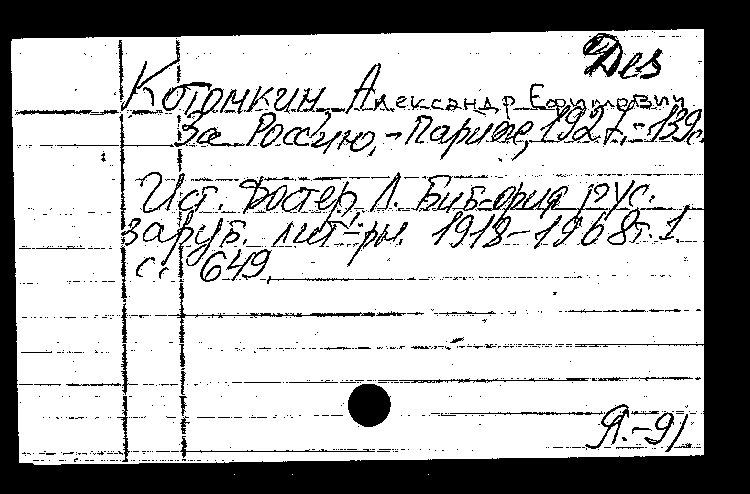 Des
Котомкин Александр Ефимович
За Россию. - Париж, 1927. - 139с.
Ист. Фостер, Л. Библ-фия рус.
заруб. лит-ры. 1918-1968 т. 1
с. 649.
Я.-91